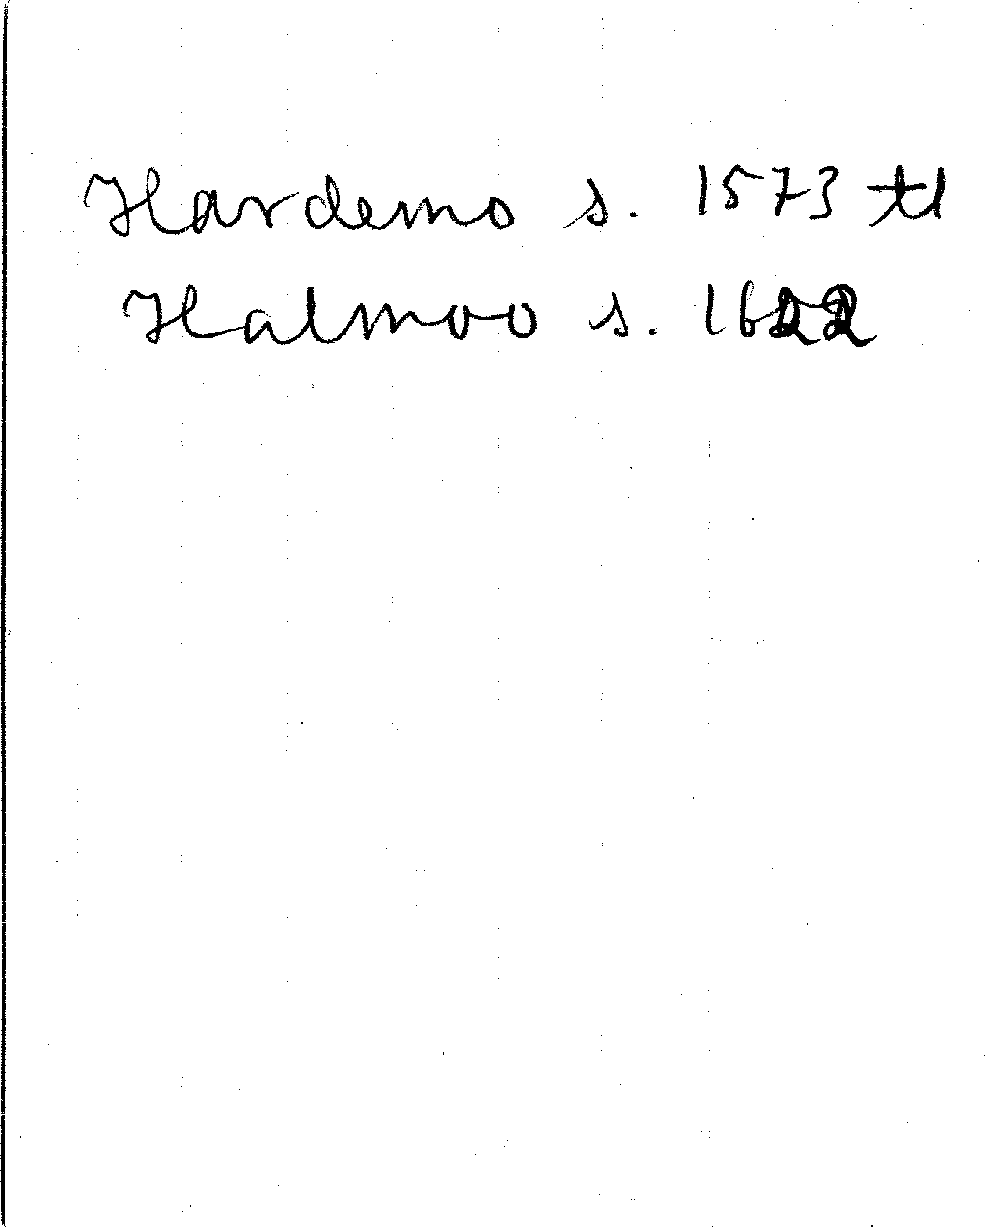 Hardemo s. 1573 tl
Halmoo s. 1622